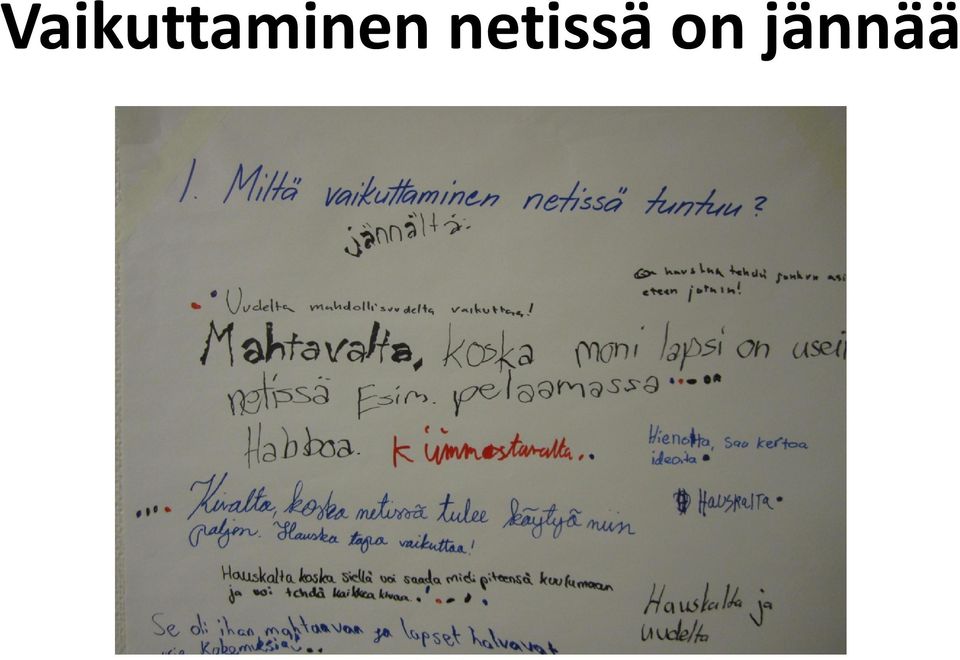 Vaikuttaminen netissä on jännää
1. Miltä vaikuttaminen netissä tuntuu?
jännältä.
On hauskaa tehdä jonkun asi
eteen jotain!
Uudelta mahdollisuudelta vaikuttaa!
Mahtavalta, koska moni lapsi on usei
netissä Esim. pelaamassa
Habboa. Kiinnostavalta.
Hienolta, saa kertoa
ideoita
Kivalta, koska netissä tulee käytyä niin
paljon. Hauska tapa vaikuttaa!
Hauskalta
Hauskalta koska siellä voi saada mieli piteensä kuulumaan
ja voi tehdä kaikkea kivaa.
Hauskalta ja
uudelta
Se oli ihan mahtavan ja lapset haluavat